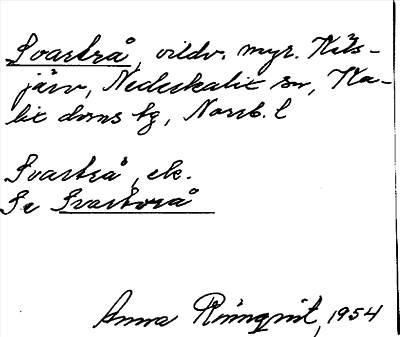 Svartrå, vildv. myr. Kits-
järv, Nederkalix sn, Ka-
lix doms tg, Norrb. l
Svartrå, ek.
Se Svartvrå
Anna Rönnqvist, 1954